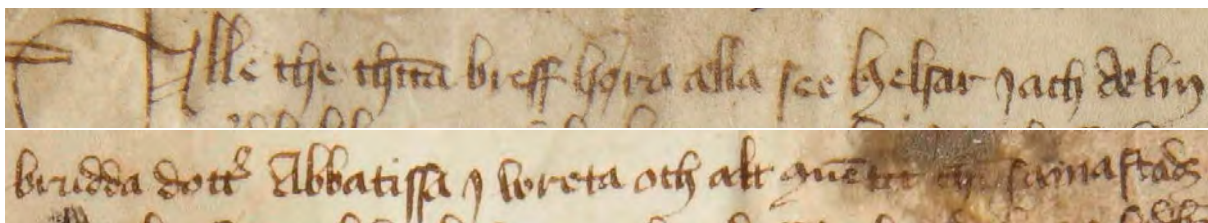 Alle the thetta breff høra alla see helsar jach Ælin
brudda dotter Abbatissa j wreta och alt quentet samastads